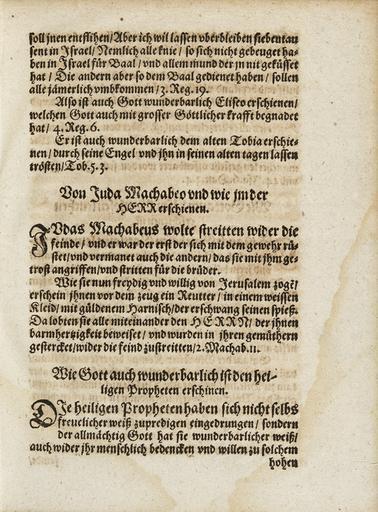 soll jnen entflihen/Aber ich wil lassen vberbleiben siebentau
sent in Israel/ Nemlich alle knie/ so sich nicht gebeuget ha-
ben in Israel für Baal/ vnd allem mund der jn nit geküsset
hat/ Die andern aber so dem Baal gedienet haben/ sollen
alle jämerlich vmbkommen/ 3. Reg. 19.
Also ist auch Gott wunderbarlich Eliseo erschienen/
welchen Gott auch mit grosser Göttlicher krafft begnadet
hat/ 4. Reg. 6.
Er ist auch wunderbarlich dem alten Tobia erschie-
nen/ durch seine Engel vnd jhn in seinen alten tagen lassen
trösten/ Tob. 5. 3.
Von Juda Machabeo vnd wie jm der
HERR erschienen.
IVdas Machabeus wolte streitten wider die
feinde/ vnd er war der erst der sich mit dem gewehr rü-
stet/ vnd vermanet auch die andern/ das sie mit jhm ge-
trost angriffen/ vnd stritten für die brüder.
Wie sie nun freydig vnd willig von Jerusalem zogē/
erschein jhnen vor dem zeug ein Reutter/ in einem weissen
Kleid/ mit güldenem Harnisch/ der erschwang seinen spieß.
Da lobten sie alle miteinander den HERRN/ der jhnen
barmhertzigkeit beweiset/ vnd wurden in jhren gemüthern
gestercket/ wider die feind zustreitten/ 2. Machab. 11.
Wie Gott auch wunderbarlich ist den hei-
ligen Propheten erschinen.
DIe heiligen Propheten haben sich nicht selbs
freuelicher weiß zupredigen eingedrungen/ sondern
der allmächtig Gott hat sie wunderbarlicher weiß/
auch wider jhr menschlich bedencken vnd willen zu solchem
hohen